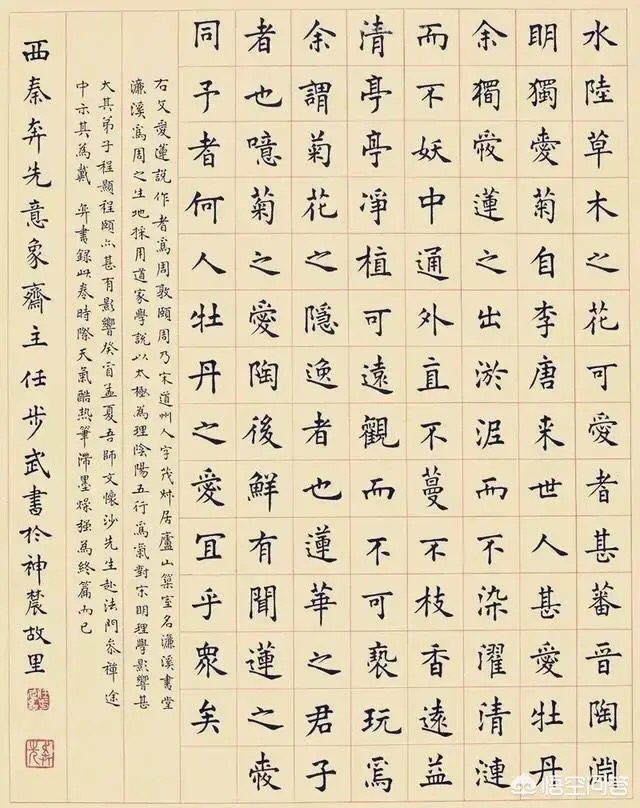 水陸草木之花可愛者甚蕃晉陶淵
明獨愛菊自李唐来世人甚愛牡丹
余獨愛蓮之出淤泥而不染濯清漣
而不妖中通外直不蔓不枝香遠益
清亭亭淨植可遠觀而不可褻玩焉
余謂菊花之隱逸者也蓮華之君子
者也噫菊之愛陶後鮮有聞蓮之愛
同予者何人牡丹之愛宜乎眾矣
右文愛蓮說作者爲周敦頤周乃宋道州人字茂叔居廬山築室名濂溪書堂
濂溪爲周之生地採用道家學說以太極為理陰陽五行爲氣對宋明理學影響甚
大其弟子程顥程頤亦甚有影響癸酉孟夏吾師文懷沙先生赴法門參禪途
中示其為 書錄此奉時際天氣酷熱筆滯墨燥强為終篇而已
西秦弇先意象齋主任步武書於神農故里
悟空问答